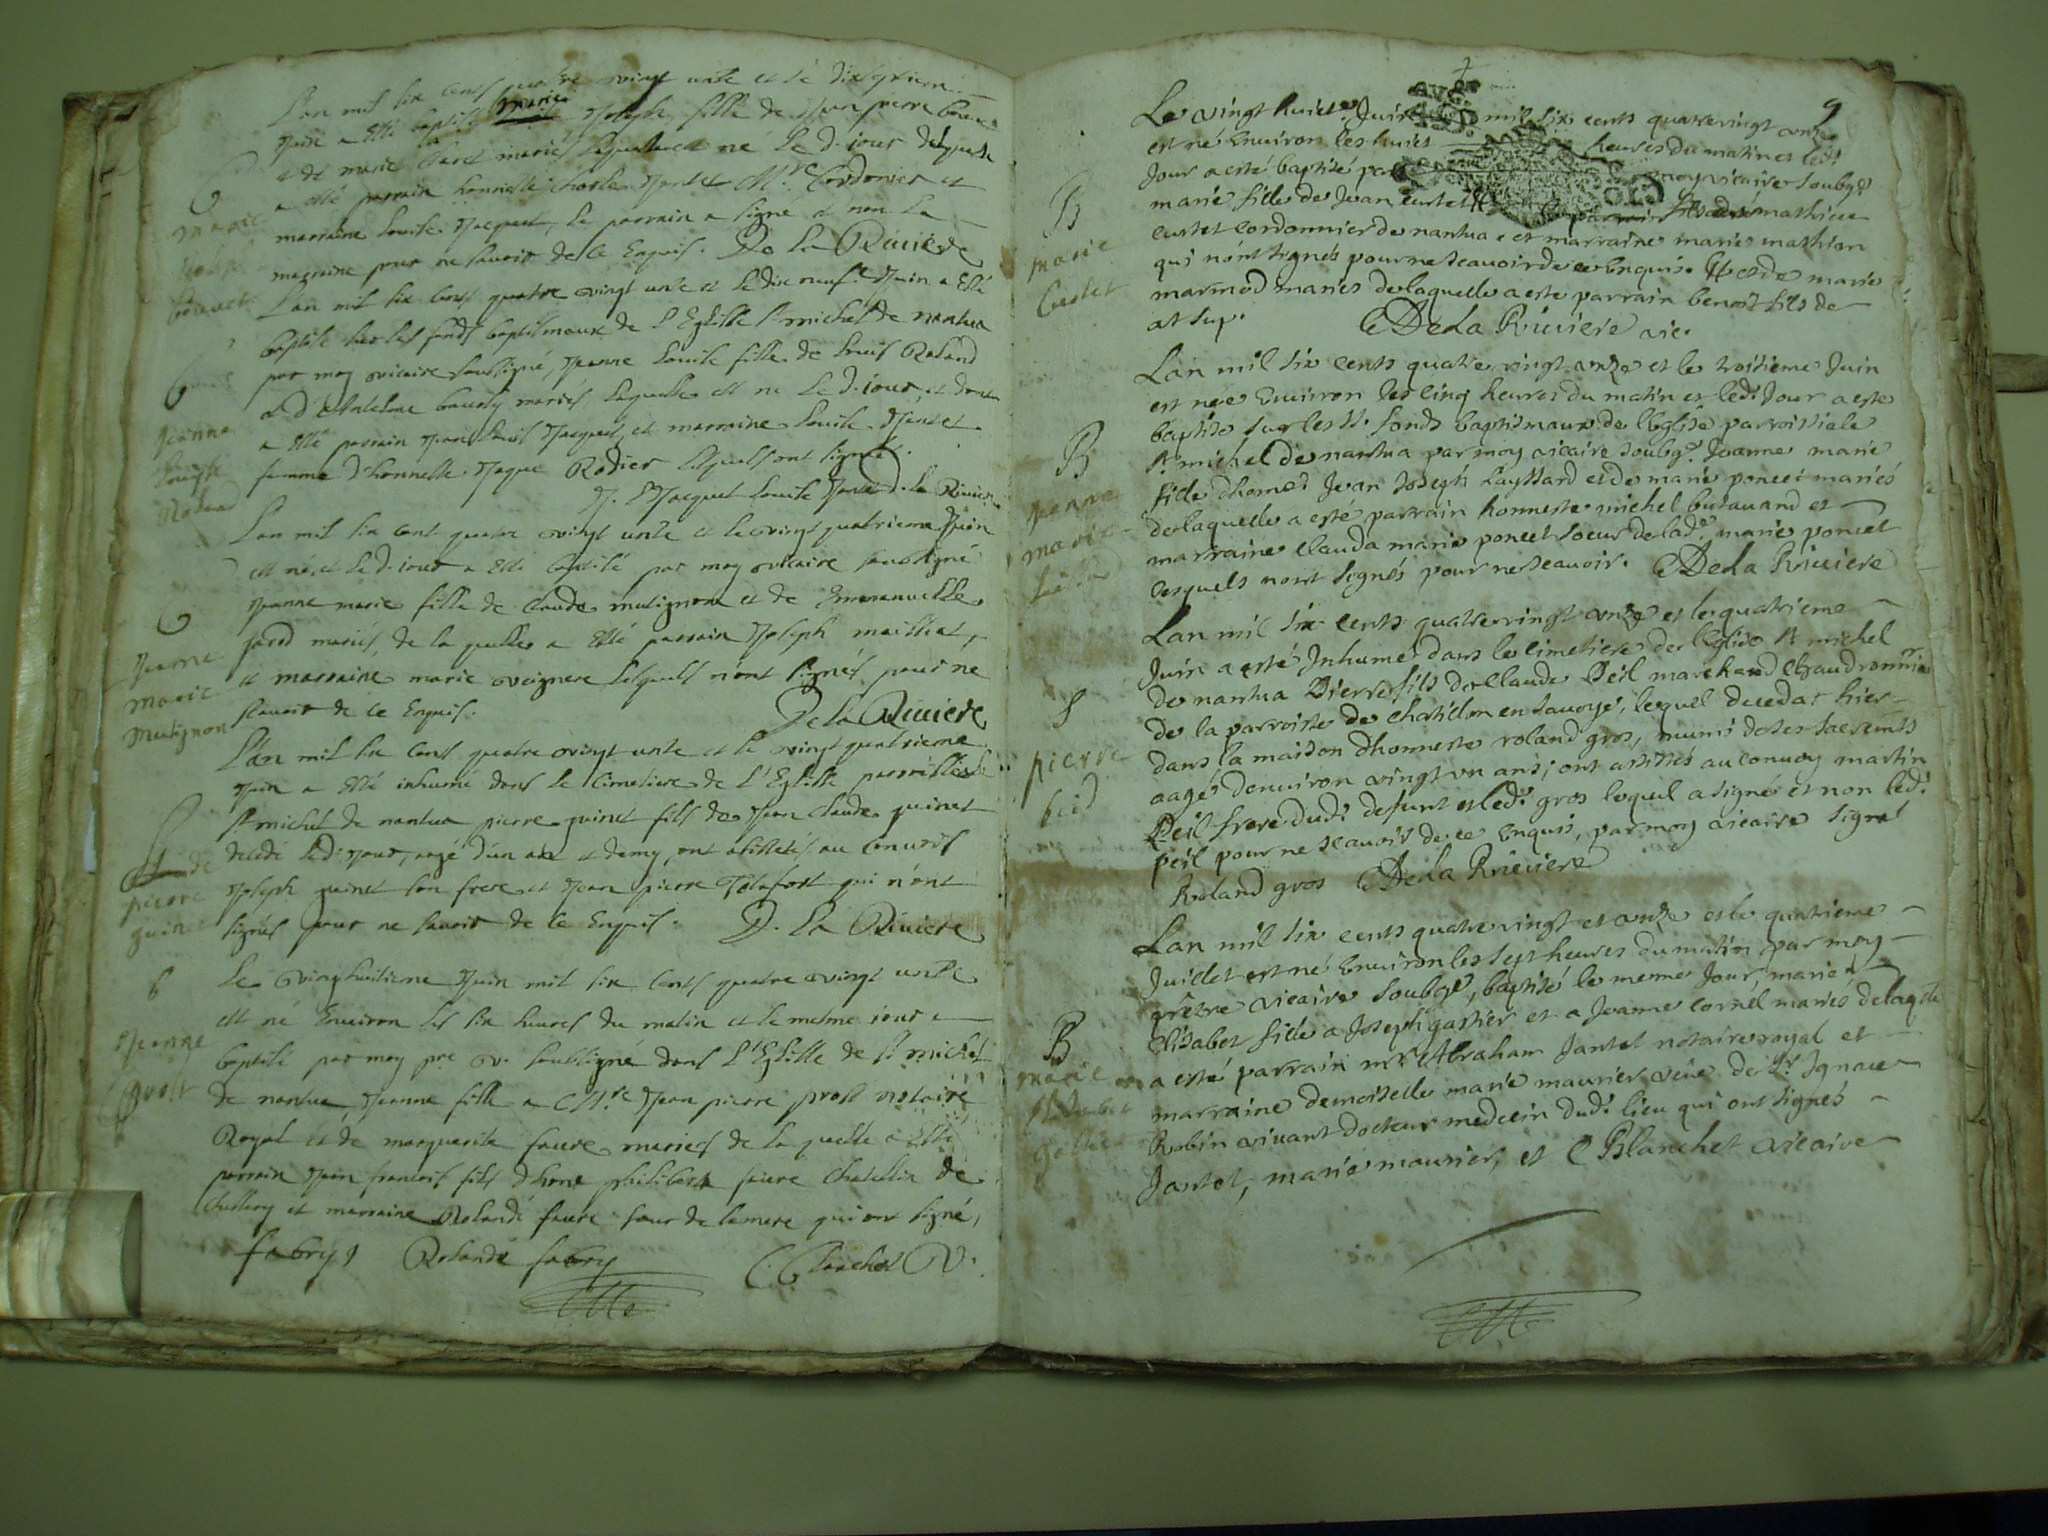 L'an mil six cens quatre vingt unse et le dix
Juin a esté baptisé marie Joseph fille de Jean pierre
et de marie mariés laquelle est né le d. jour
a esté parrain honnette charles Jantet M.re Cordonier et
marraine Louise Jacquet, le parrain a signé et non la
marraine pour ne savoir de ce Enquis. De la Riviere
L'an mil six cens quatre vingt unse et le dix neuf.e Juin a esté
baptisé sur les fonds baptismaux de l'Eglisse st michel de nantua
par moy vicaire soussigné, Jeanne Louise fille de Louis Roland
et d'Antelme mariés laquelle est né le d. jour, et dont
a esté parrain Jean Louis Jacquet, et marraine Louise Jantet
femme d'honnette Jaque Rodier lesquels ont signé.
J. L Jacquet Louise Jantet D. la Riviere
L'an mil six cent quatre vingt unse et le vingt quatrieme Juin
est né et le d. jour a esté baptisé par moy vicaire soussigné
Jeanne marie fille de Claude mutignon et de Emmanuelle
jacod mariés, de la quelle a esté parrain Joseph maissiat,
et marraine marie lesquels n'ont signés pour ne
scavoir de ce Enquis. De la Riviere
L'an mil six cens quatre vingt unse et le vingt quatrieme
Juin a esté inhumé dans le Cimetiere de L'Eglisse parroissiale
st michel de nantua pierre guinet fils de Jean Claude guinet
decedé led. Jour, aagé d'un an et demy, ont assistés au convois
Joseph guinet son frere et Jean pierre qui n'ont
signés pour ne savoir de ce Enquis. D. La Riviere
Le vinghuitieme Juin mil six cens quatre vingt unse
est né Environ les six heures du matin et le mesme jour
baptisé par moy pre v. soussigné dans L'Eglisse de st michel
de nantua, Jeanne fille a M.re Jean pierre prost notaire
Royal et de marguerite favre mariés de la quelle a esté
parrain Jean francois fils d'hon philibert favre Chatelain de
et marraine Rolande favre soeur de la mere qui ont signé,
fabry Rolande fabry C. Blanchet V.
marie
Jeanne
Louise
Roland
Jeanne
marie
Mutignon
pierre
guinet
Jeanne
prost
9
Le vingt huict.e Juin mil six cents quatrevingt unze
est né Environ les huict heures du matin et led.
Jour a esté baptisé par moy vicaire soubg.é
marie fille de Jean custet
custet cordonnier de nantua. et marraine marie mathion
qui n'ont signés pour ne scavoir de ce Enquis. # et de marie
marmod mariés de laquelle a este parrain benoit fils de
at sup. C Dela Riviere vic.
Lan mil six cents quatre vingt unze et le troisieme Juin
est née Environ les cinq heures du matin et led. Jour a este
baptisée sur les st. fonds baptismaux de l'Eglise parroissiale
st michel de nantua par moy vicaire soubg.é Jeanne marie
fille dhonn.e Jean Joseph Layssard et de marie poncet mariés
de laquelle a este parrain honneste michel butavand et
marraine clauda marie poncet soeur de lad.e marie poncet
lesquels nont signés pour ne scavoir. C Dela Riviere
Lan mil six cents quatrevingt unze et le quatrieme
Juin a esté Inhumé dans le cimetiere de leglise st michel
de nantua Pierre fils de Claude Béil marchand Chaudronnier
de la parroisse de chatillon en savoye, lequel deceda hier
dans la maison dhonneste roland gros, munis de ses sacrements
aagé denviron vingt un ans; ont assistés au convoy martin
Beil frere dud. defunt et led. gros lequel a signé et non led.
peil pour ne scavoir de ce enquis, par moy vicaire signé
Roland gros C Dela Riviere
Lan mil six cents quatre vingt et unze et le quatrieme
Juillet est né Environ les sept heures du matin par moy
prêtre vicaire soubg.é, baptisé le meme Jour, marie
Elisabet fille a Joseph gastier et a Jeanne cornel mariés delaq.lle
a esté parrain m.re Abraham Jantet notaire royal et
marraine demoiselle marie maurier veuve de s.r Ignace
Robin vivant docteur medecin dud. lieu qui ont signés
Jantet, marie maurier, et C Blanchet vicaire
B
marie
Custet
B
Jeanne
marie
S
pierre
beil
B
marie
Elisabet